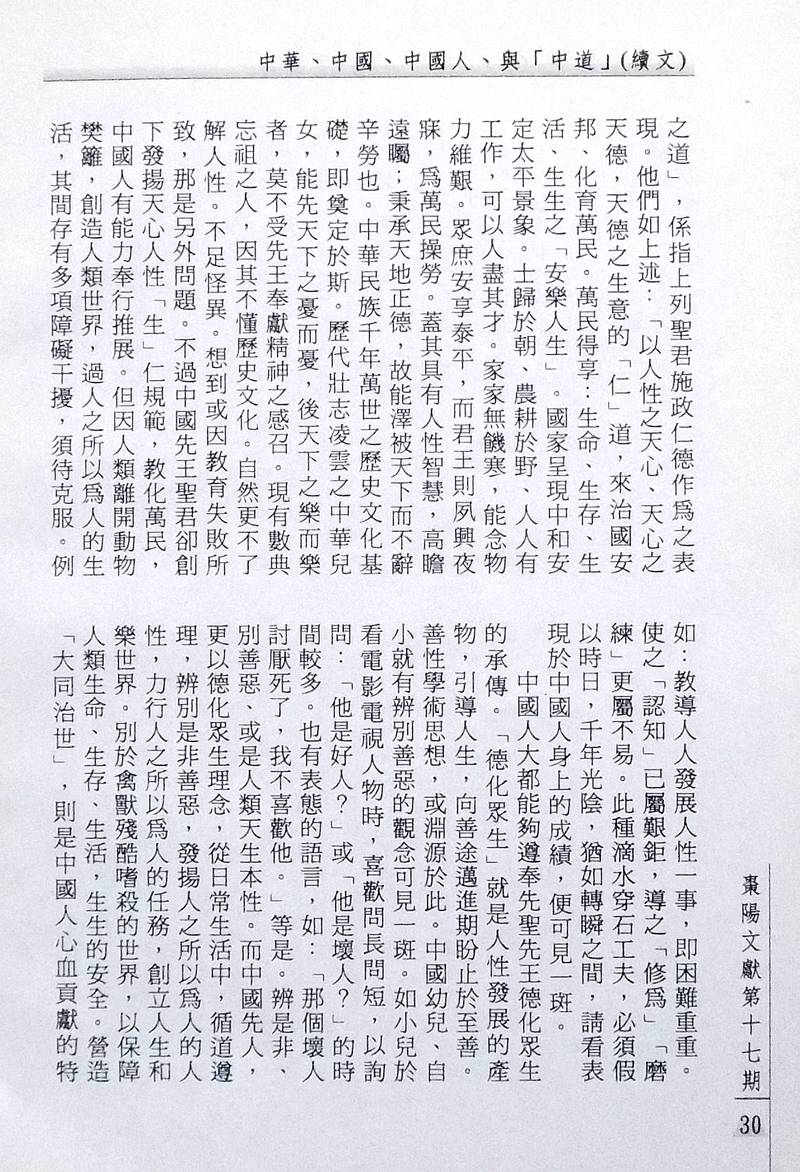 中華、中國、中國人、與「中道」(續文)
之道」，係指上列聖君施政仁德作爲之表
現。他們如上述：「以人性之天心、天心之
天德，天德之生意的「仁」道，來治國安
邦、化育萬民。萬民得享：生命、生存、生
活、生生之「安樂人生」。國家呈現中和安
定太平景象。士歸於朝、農耕於野、人人有
工作，可以人盡其才。家家無饑寒，能念物
力維艱。眾庶安享泰平，而君王則夙興夜
寐，爲萬民操勞。蓋其具有人性智慧，高瞻
遠矚；秉承天地正德，故能澤被天下而不辭
辛勞也。中華民族千年萬世之歷史文化基
礎，即奠定於斯。歷代壯志凌雲之中華兒
女，能先天下之憂而憂，後天下之樂而樂
者，莫不受先王奉獻精神之感召。現有數典
忘祖之人，因其不懂歷史文化。自然更不了
解人性。不足怪異。想到或因教育失敗所
致，那是另外問題。不過中國先王聖君卻創
下發揚天心人性「生」仁規範，教化萬民，
中國人有能力奉行推展。但因人類離開動物
樊籬，創造人類世界，過人之所以爲人的生
活，其間存有多項障礙干擾，須待克服。例
如：教導人人發展人性一事，即困難重重。
使之「認知」已屬艱鉅，導之「修爲」「磨
練」更屬不易。此種滴水穿石工夫，必須假
以時日，千年光陰，猶如轉瞬之間，請看表
現於中國人身上的成績，便可見一斑。
中國人大都能夠遵奉先聖先王德化眾生
的承傳。「德化眾生」就是人性發展的產
物，引導人生，向善途邁進期盼止於至善。
善性學術思想，或淵源於此。中國幼兒、自
小就有辨別善惡的觀念可見一斑。如小兒於
看電影電視人物時，喜歡問長問短，以詢
問：「他是好人？」或「他是壞人？」的時
間較多。也有表態的語言，如：「那個壞人
討厭死了，我不喜歡他。」等是。辨是非、
別善惡、或是人類天生本性。而中國先人，
更以德化眾生理念，從日常生活中，循道遵
理，辨別是非善惡，發揚人之所以爲人的人
性，力行人之所以爲人的任務，創立人生和
樂世界。別於禽獸殘酷嗜殺的世界，以保障
人類生命、生存、生活，生生的安全。營造
「大同治世」，則是中國人心血貢獻的特
棗陽文獻第十七期
30